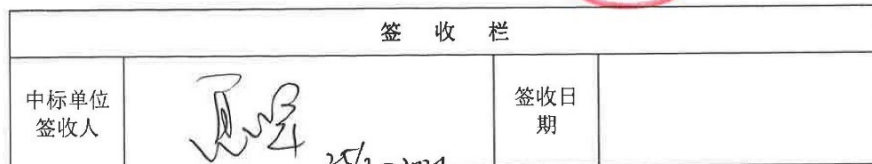 签 收 栏
中标单位
签收人
签收日
期